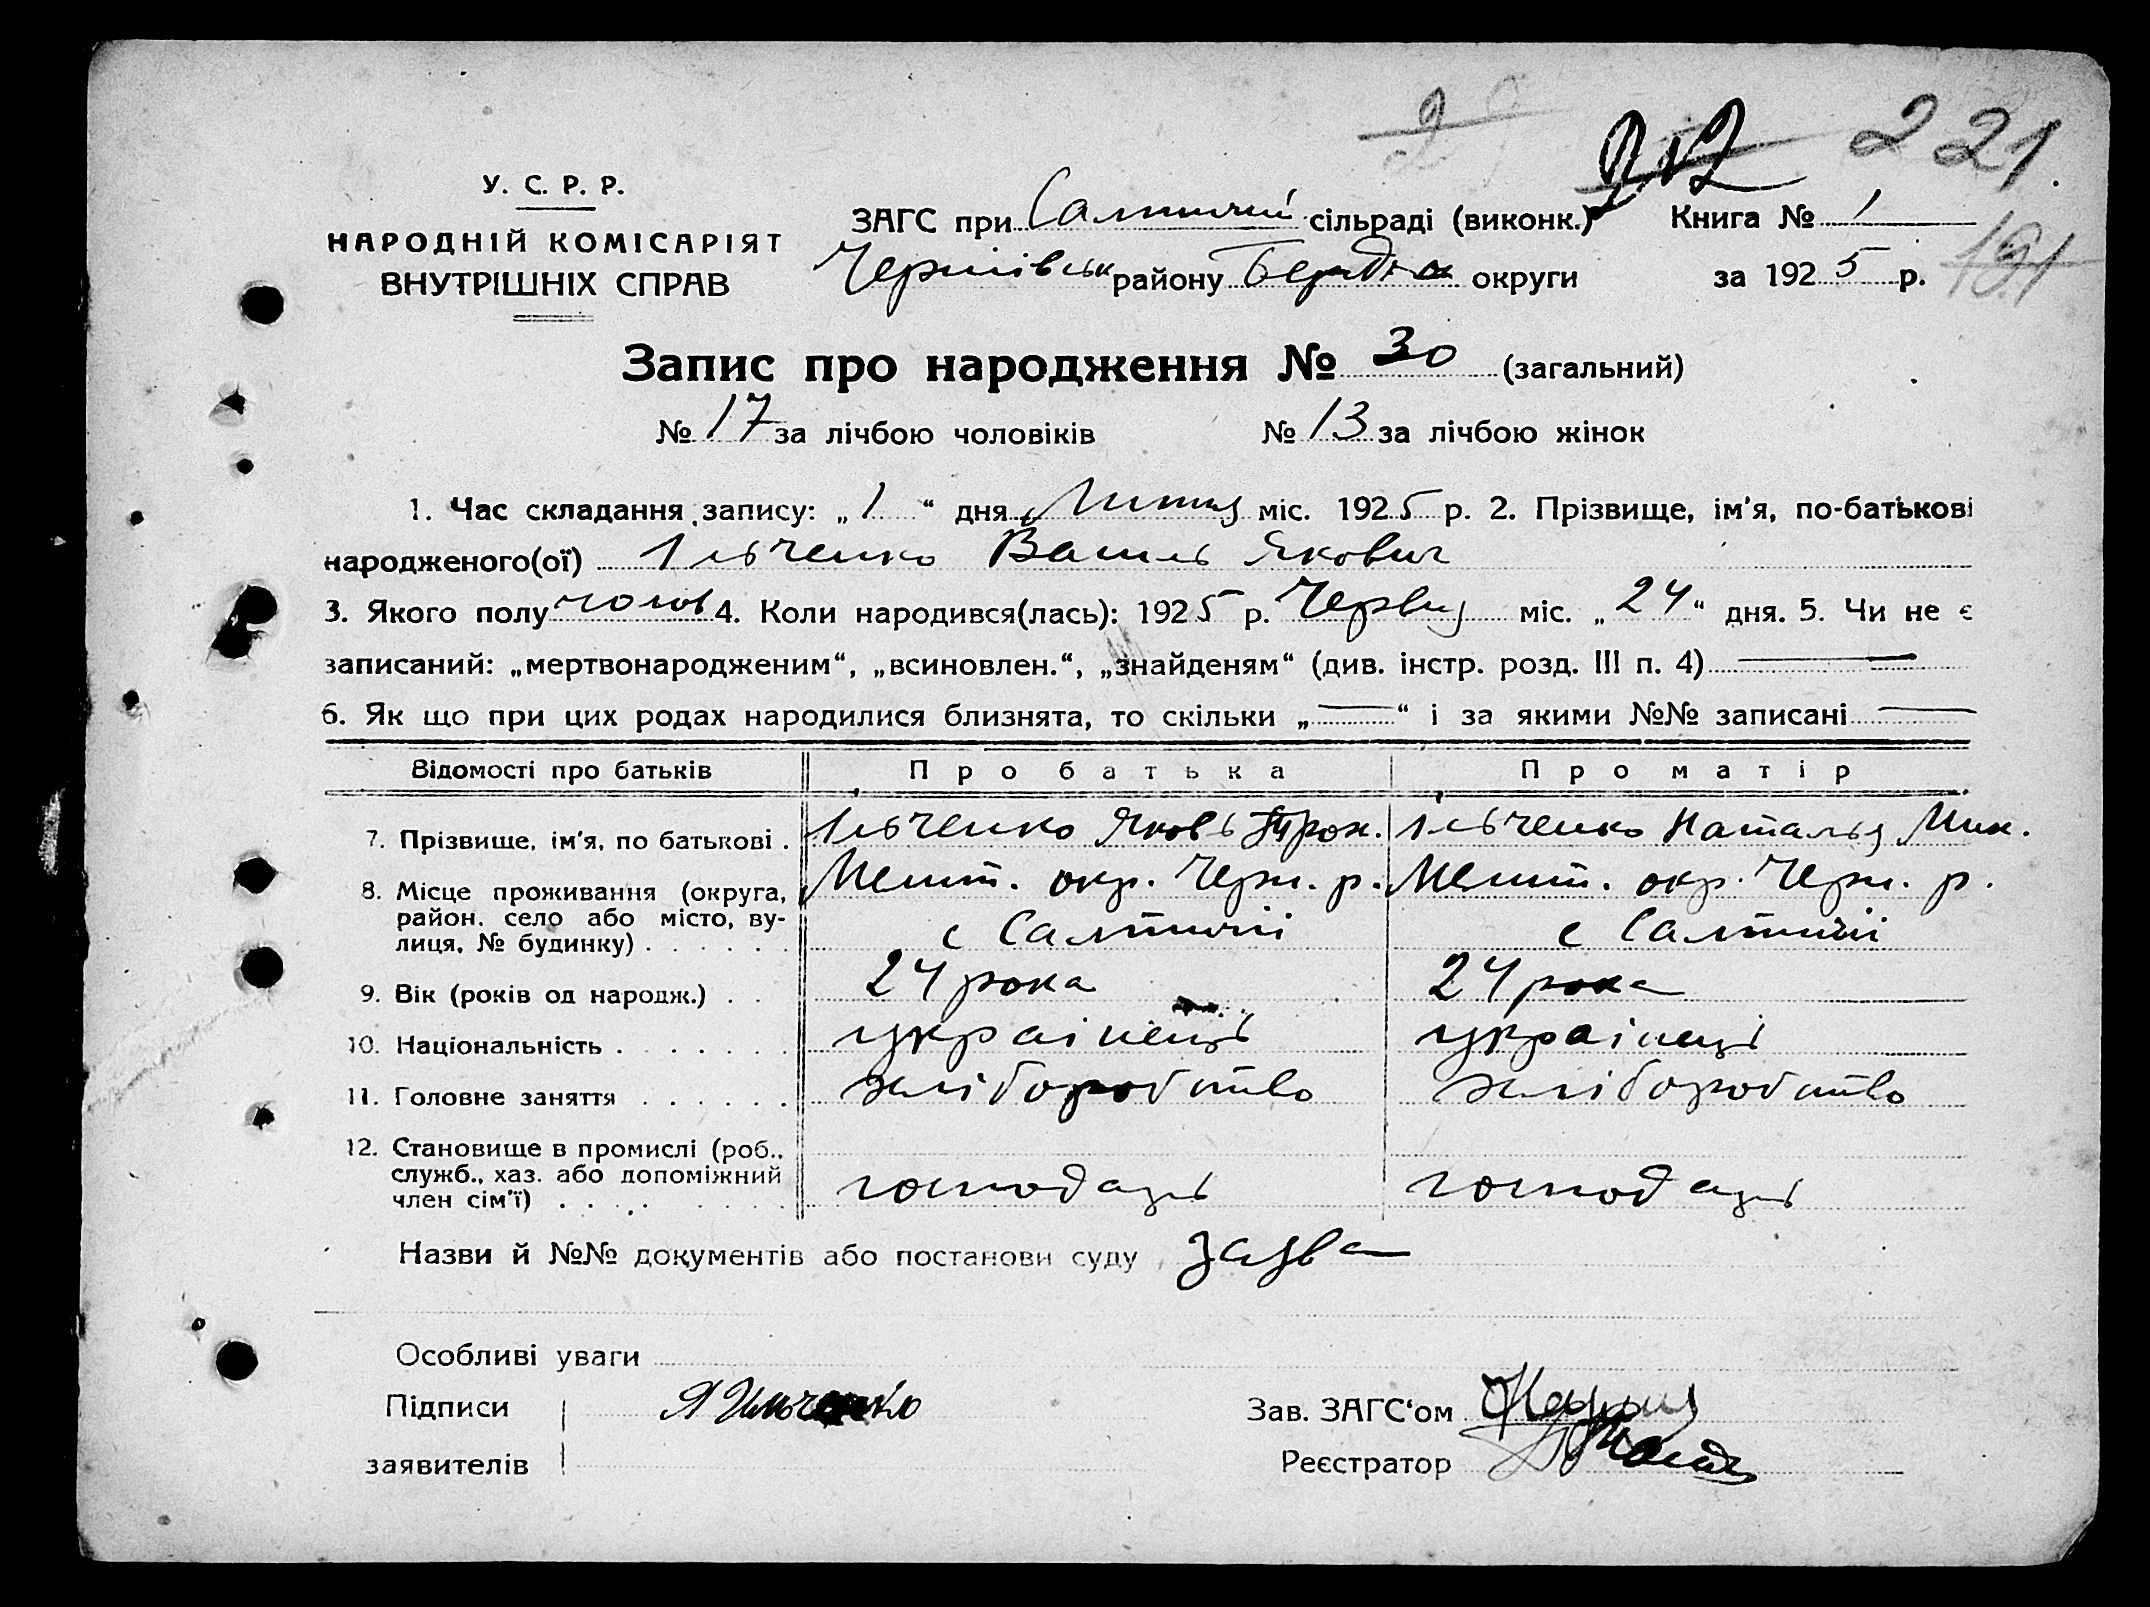 212 221.
У. С. Р. Р.
НАРОДНІЙ КОМІСАРІЯТ
ВНУТРІШНІХ СПРАВ
ЗАГС при Салтичій сільраді (виконк.) Книга № 1
Чернівськ району Бердян округи за 1925 р. 191
Запис про народження № 30 (загальний)
№ 17 за лічбою чоловіків № 13 за лічбою жінок
1. Час складання запису: „1“ дня Липня міс. 1925 р. 2. Прізвище, ім'я, по-батькові
народженого(ої) Ільченко Василь Якович
3. Якого полу чолов 4. Коли народився(лась): 1925 р. Червня міс. „24“ дня. 5. Чи не є
записаний: „мертвонародженим“, „всиновлен.“, „знайденям“ (див. інстр. розд. III п. 4)
6. Як що при цих родах народилися близнята, то скільки „—“ і за якими №№ записані —
Відомості про батьків Про батька Про матір
7. Прізвище, ім'я, по батькові . Ільченко Яковь Трох. Ільченко Наталья Мик.
8. Місце проживання (округа, район, село або місто, вулиця, № будинку) Мелит. окр. Черн. р. Мелит. окр. Черн. р.
с Салтичії с Салтичії
9. Вік (років од народж.) . . 24 рока 24 рока
10. Національність . . . . . . українець українець
11. Головне заняття . . . . . . хліборобство хліборобство
12. Становище в промислі (роб., служб., хаз. або допоміжний член сім'ї) . . . . господарь господарь
Назви й №№ документів або постанови суду заява
Особливі уваги
Підписи Я Ильченко Зав. ЗАГС‘ом
заявителів Реєстратор